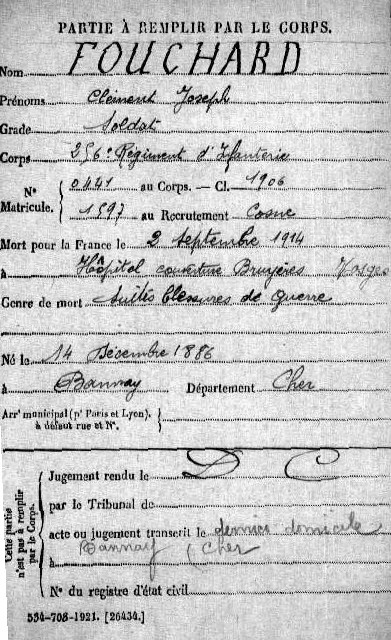 PARTIE À REMPLIR PAR LE CORPS.
Nom FOUCHARD
Prénoms Clément Joseph
Grade Soldat
Corps 256e Régiment d'Infanterie
N° Matricule. { 0441 au Corps. — Cl. 1906
1597 au Recrutement Cosne
Mort pour la France le 2 Septembre 1914
à Hôpital couverture Bruyères Vosges
Genre de mort Suites blessures de guerre
Né le 14 Décembre 1886
à Bannay Département Cher
Arrt municipal (pr Paris et Lyon), à défaut rue et N°. {
Cette partie n'est pas à remplir par le Corps.
D C
Jugement rendu le
par le Tribunal de
acte ou jugement transcrit le dernier domicile
à Bannay (Cher
N° du registre d'état civil
534-708-1921. [26434.]